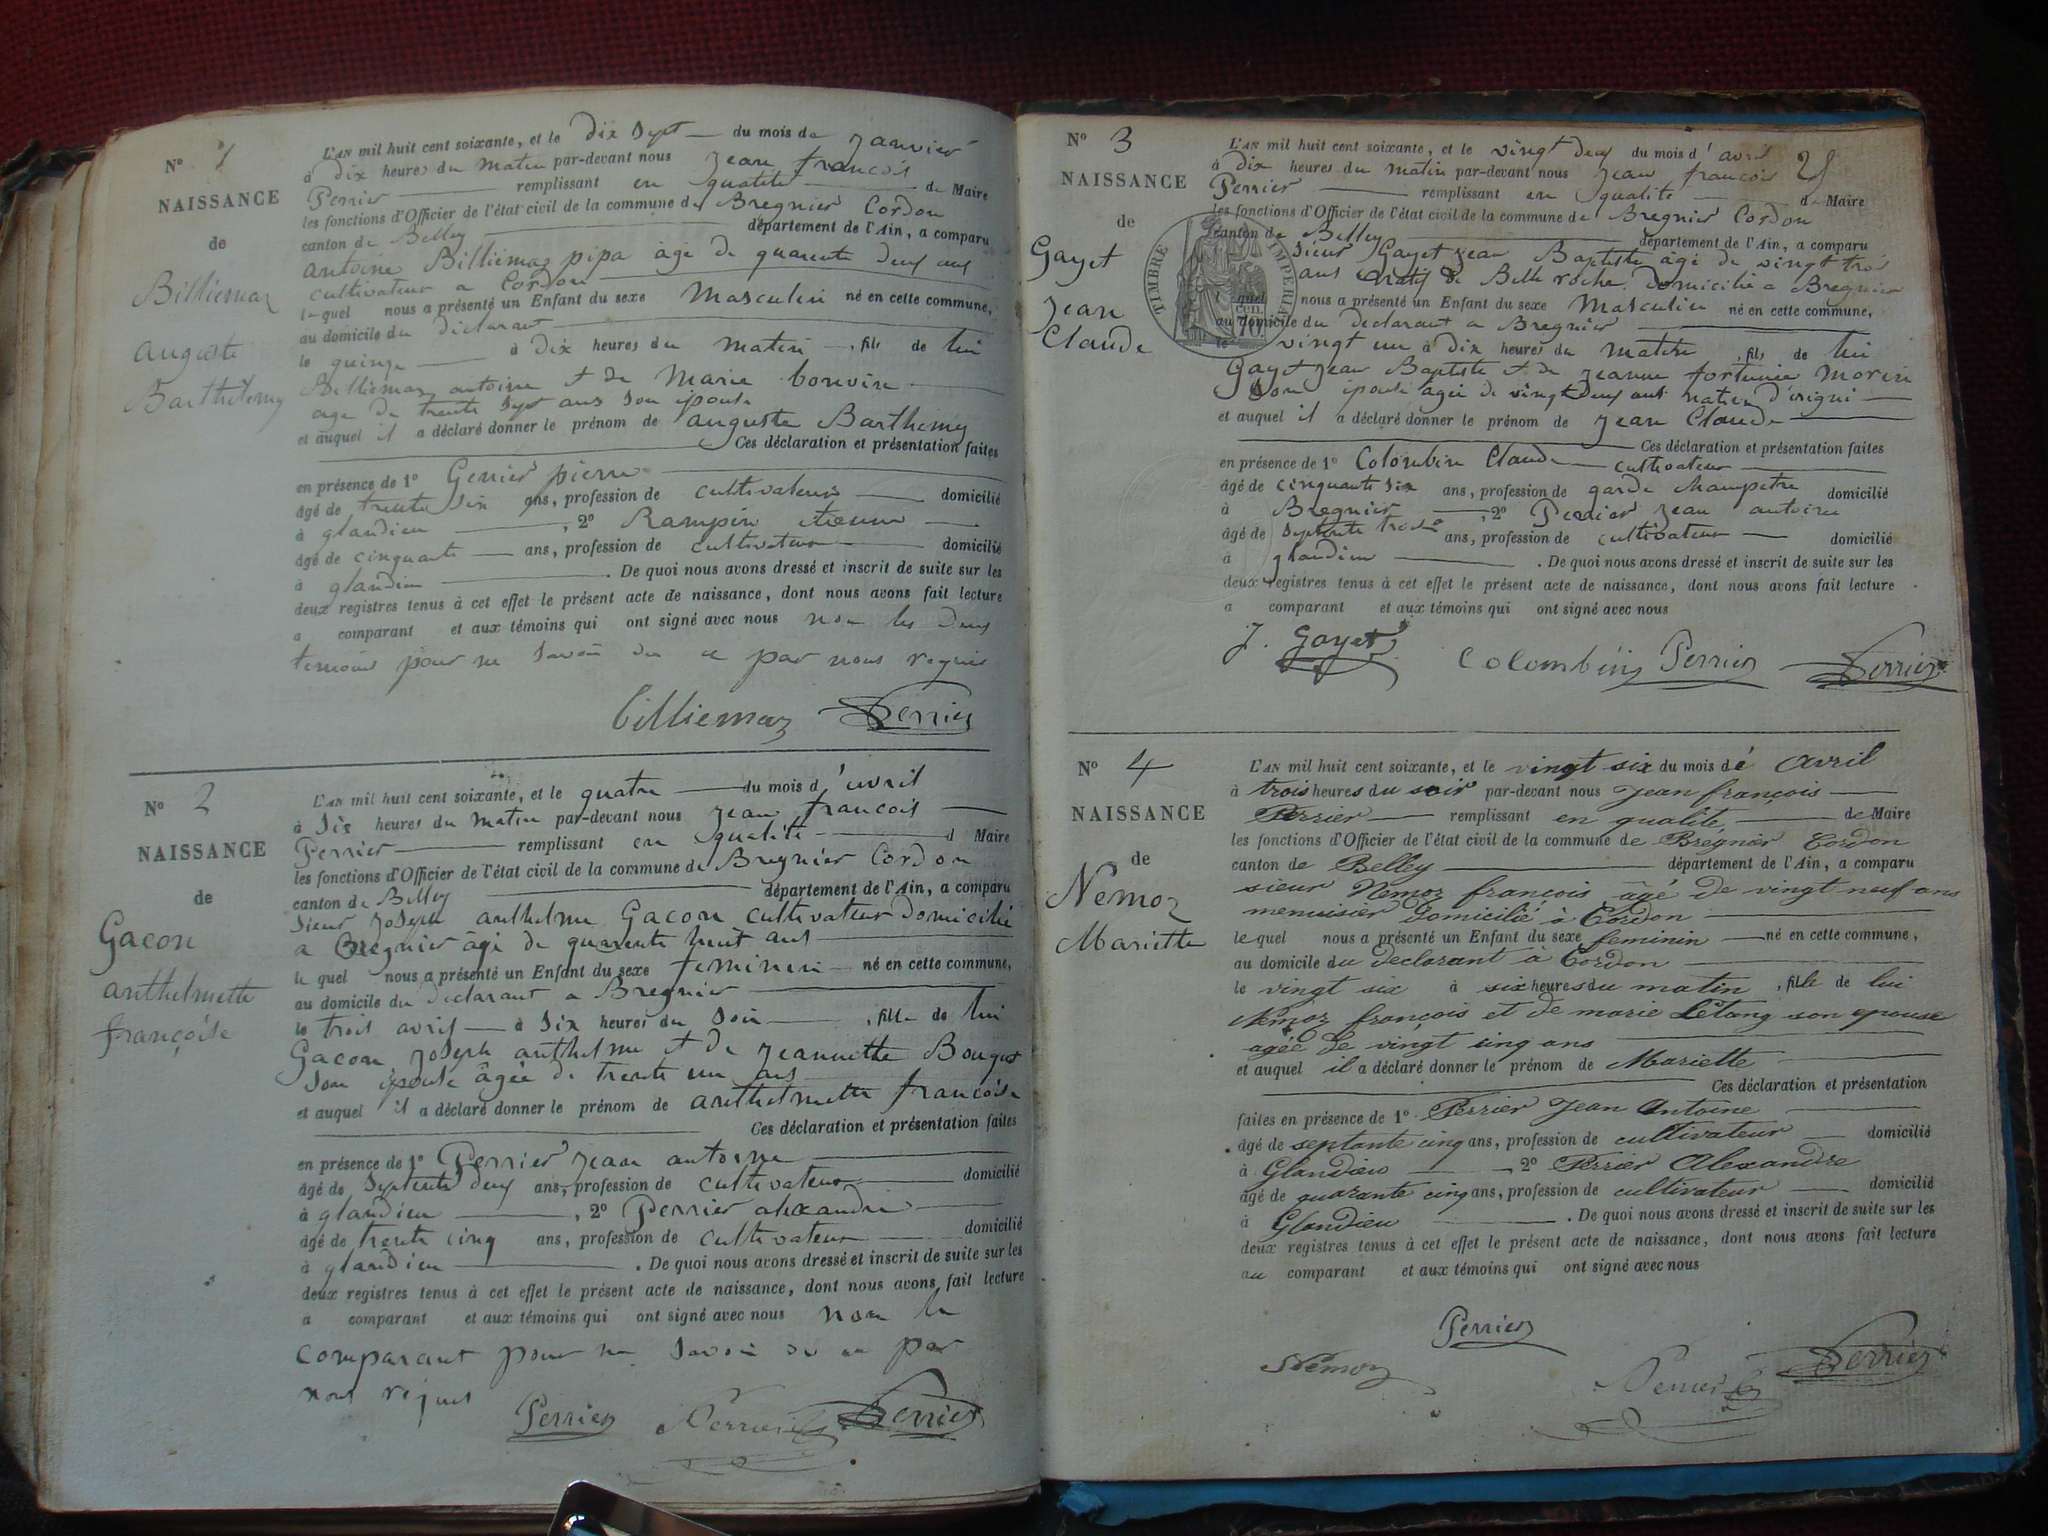 N° 1
NAISSANCE
de
Billiemaz
auguste
Barthélemy
L'AN mil huit cent soixante, et le dix sept du mois de janvier
à dix heures du matin par-devant nous jean francois
Perrier remplissant en qualité de Maire
les fonctions d'Officier de l'état civil de la commune de Bregnier Cordon
canton de Belley département de l'Ain, a comparu
antoine Billiemaz pipa âgé de quarente deux ans
cultivateur a Cordon
lequel nous a présenté un Enfant du sexe Masculin né en cette commune,
au domicile du déclarant
le quinze à dix heures du matin, fils de lui
Billiemaz antoine et de Marie bouvin
age de trente sept ans son épouse
et auquel il a déclaré donner le prénom de auguste Barthemy
Ces déclaration et présentation faites
en présence de 1° Genier pierre
âgé de trente six ans, profession de cultivateur domicilié
à glandieu, 2° Rampin etienne
âgé de cinquante ans, profession de cultivateur domicilié
à glandieu. De quoi nous avons dressé et inscrit de suite sur les
deux registres tenus à cet effet le présent acte de naissance, dont nous avons fait lecture
a comparant et aux témoins qui ont signé avec nous non les deux
temoins pour ne savoir de ce par nous requis
billiemaz Perrier
N° 2
NAISSANCE
de
Gacon
anthelmette
françoise
L'AN mil huit cent soixante, et le quatre du mois d'avril
à six heures du matin par-devant nous jean francois
Perrier remplissant en qualité d Maire
les fonctions d'Officier de l'état civil de la commune de Bregnier Cordon
canton de Belley département de l'Ain, a comparu
sieur joseph anthelme Gacon cultivateur domicilié
a Bregnier âgé de quarente huit ans
le quel nous a présenté un Enfant du sexe feminin né en cette commune,
au domicile du declarant a Bregnier
le trois avril à six heures du soir, fille de lui
Gacon joseph anthelme et de jeannette Bouget
son épouse âgée de trente un ans
et auquel il a déclaré donner le prénom de anthelmette francoise
Ces déclaration et présentation faites
en présence de 1° Perrier jean antoine
âgé de septente deux ans, profession de cultivateur domicilié
à glandieu, 2° Perrier alexandre
âgé de trente cinq ans, profession de cultivateur domicilié
à glandieu. De quoi nous avons dressé et inscrit de suite sur les
deux registres tenus à cet effet le présent acte de naissance, dont nous avons fait lecture
a comparant et aux témoins qui ont signé avec nous non le
comparant pour ne savoir de ce par
nous requis
Perrier Perrier Perrier
N° 3
NAISSANCE
de
Gayet
jean
Claude
TIMBRE IMPERIAL
cen. 70
L'AN mil huit cent soixante, et le vingt deux du mois d'avril
à dix heures du matin par-devant nous jean francois
Perrier remplissant en qualité d Maire
les fonctions d'Officier de l'état civil de la commune de Bregnier Cordon
canton de Belley département de l'Ain, a comparu
sieur Gayet jean Baptiste âgé de vingt trois
ans natif de Belle roche domicilié a Bregnier
lequel nous a présenté un Enfant du sexe Masculin né en cette commune,
au domicile du declarant a Bregnier
le vingt un à dix heures du matin, fils de lui
Gayet jean Baptiste et de jeanne fortunée morin
son épouse âgée de vingt deux ans native d'
et auquel il a déclaré donner le prénom de jean Claude
Ces déclaration et présentation faites
en présence de 1° Colombin Claude cultivateur
âgé de cinquante six ans, profession de garde champetre domicilié
à Bregnier, 2° Perrier jean antoine
âgé de septente trois ans, profession de cultivateur domicilié
à glandieu. De quoi nous avons dressé et inscrit de suite sur les
deux registres tenus à cet effet le présent acte de naissance, dont nous avons fait lecture
a comparant et aux témoins qui ont signé avec nous
J. Gayet Colombin Perrier Perrier
N° 4
NAISSANCE
de
Nemoz
Mariette
L'AN mil huit cent soixante, et le vingt six du mois dé Avril
à trois heures du soir par-devant nous Jean françois
Perrier remplissant en qualité de Maire
les fonctions d'Officier de l'état civil de la commune de Bregnier Cordon
canton de Belley département de l'Ain, a comparu
sieur Nemoz françois âgé de vingt neuf ans
menuisier domicilié à Cordon
le quel nous a présenté un Enfant du sexe feminin né en cette commune,
au domicile du declarant à Cordon
le vingt six à six heures du matin, fille de lui
Nemoz françois et de marie Létang son epouse
agée de vingt cinq ans
et auquel il a déclaré donner le prénom de Mariette
Ces déclaration et présentation
faites en présence de 1° Perrier Jean Antoine
âgé de septante cinq ans, profession de cultivateur domicilié
à Glandieu 2° Perrier Alexandre
âgé de quarante cinq ans, profession de cultivateur domicilié
à Glandieu. De quoi nous avons dressé et inscrit de suite sur les
deux registres tenus à cet effet le présent acte de naissance, dont nous avons fait lecture
au comparant et aux témoins qui ont signé avec nous
Perrier
Nemoz Perrier Perrier